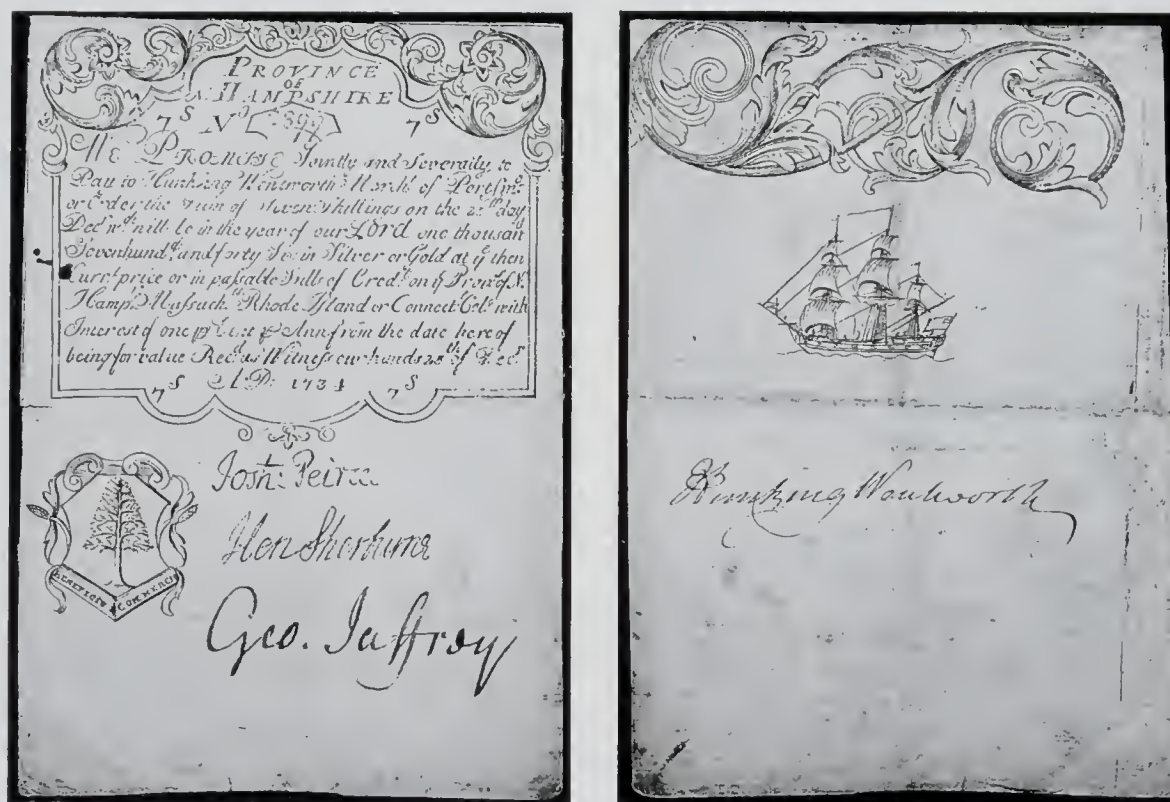 PROVINCE
of
N. HAMPSHIRE
7S No 7S
We PROMISE Jointly and Severally to
Pay to Hunking Wentworth of Portsmo
or Order the Sum of Seven Shillings on the 25th day
Decr wch will be in the year of our Lord one thousand
Sevenhundd and forty Six in Silver or Gold at ye then
Currt price or in passable Bills of Credt on ye Provs of N.
Hampr Massachts Rhode Island or Connectt Cols with
Interest of one p Cent p Ann from the date here of
being for value Recd as Witness our hands 25th of Decr
7S A.D. 1734 7S
Josh: Peirce
Hen Sherburne
Geo. Jaffrey
BENEFICIO COMMERCII
Hunking Wentworth